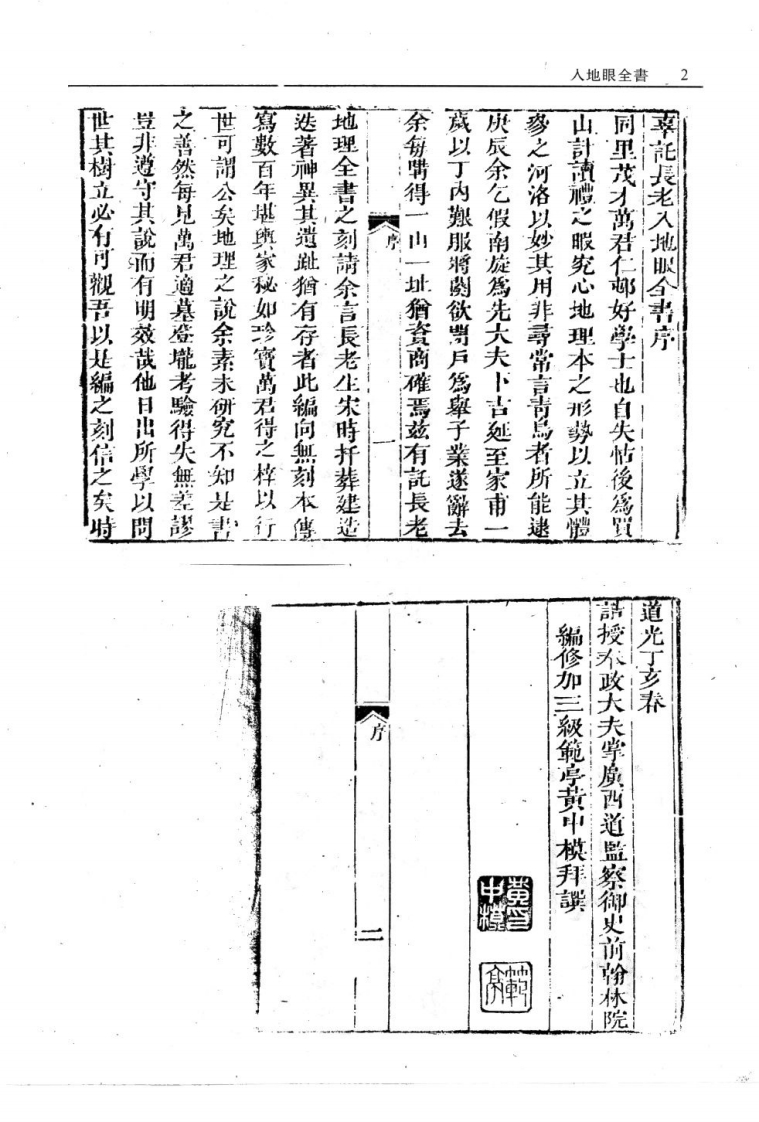 入地眼全書 2
辜託長老入地眼全書序
同里茂才萬君仁邨好學士也自失怙後爲買
山計讀禮之暇究心地理本之形勢以立其體
參之河洛以妙其用非尋常言靑烏者所能逮
庚辰余乞假南旋爲先大夫卜吉延至家甫一
歲以丁內艱服將闋欲閉戶爲舉子業遂辭去
余每購得一山一址猶資商確焉茲有託長老
序
一
地理全書之刻請余言長老生宋時扞葬建造
迭著神異其遺趾猶有存者此編向無刻本傳
寫數百年堪輿家秘如珍寶萬君得之梓以行
世可謂公矣地理之說余素未硏究不知是書
之善然每見萬君適墓登壠考驗得失無差謬
豈非遵守其說而有明效哉他日出所學以問
世其樹立必有可觀吾以是編之刻信之矣時
道光丁亥春
誥授奉政大夫掌廣西道監察御史前翰林院
編修加三級範亭黃中模拜譔
黃中模印
範亭
序
二